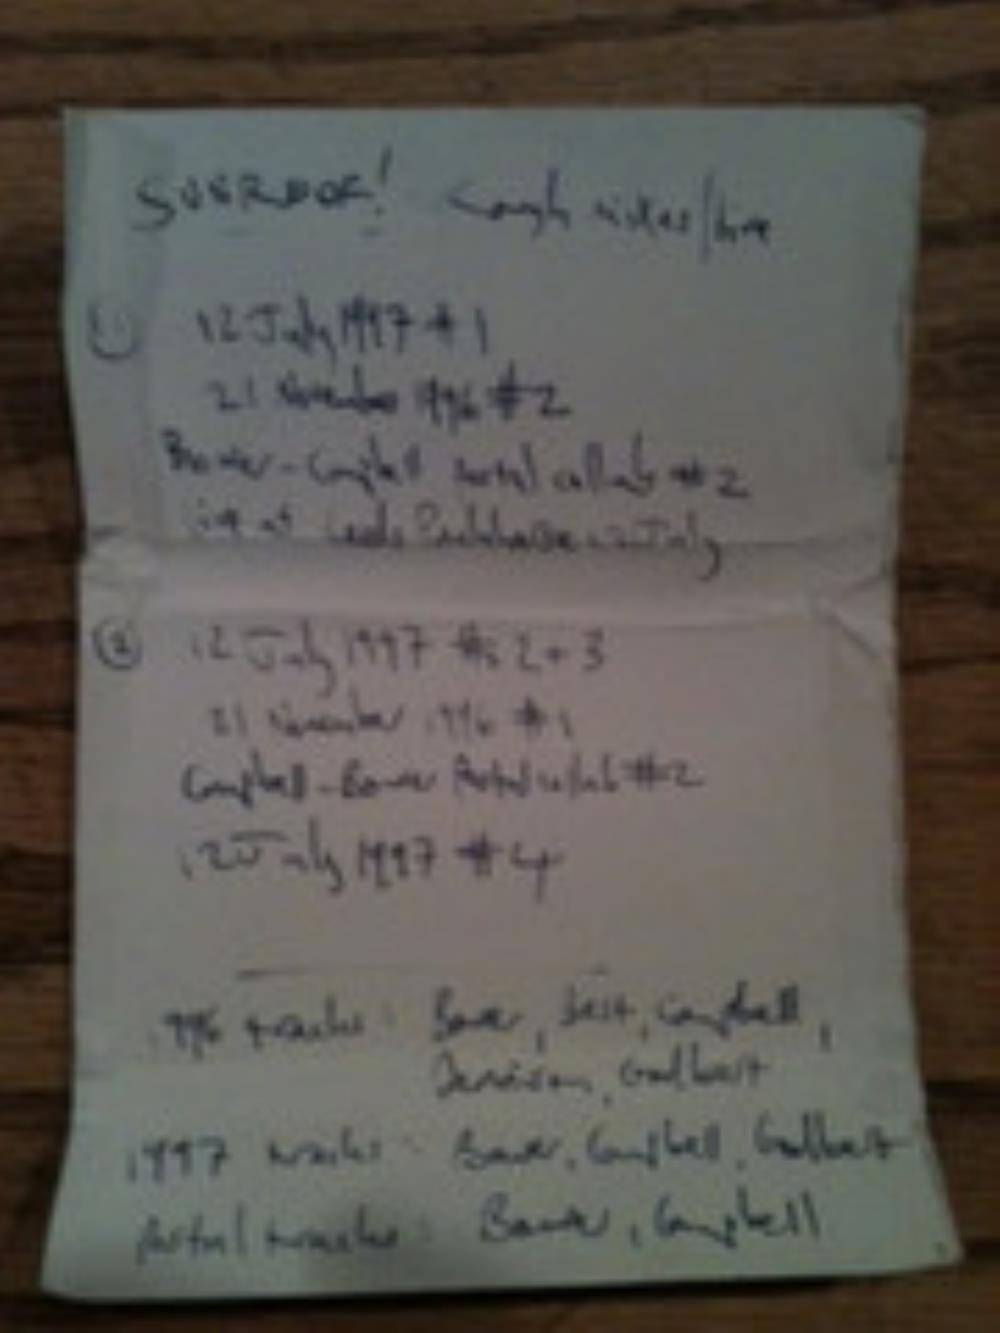 SUNROOF! rough mixes/live
1 12 July 1997 #1
21 November 1996 #2
Bower-Campbell postal collab #2
live at Leeds 12 July
2 12 July 1997 #s 2+3
21 November 1996 #1
Campbell-Bower Postal collab #2
12 July 1997 #4
1996 tracks: Bower, Campbell,
Godbert
1997 tracks: Bower, Campbell, Godbert
Postal tracks: Bower, Campbell